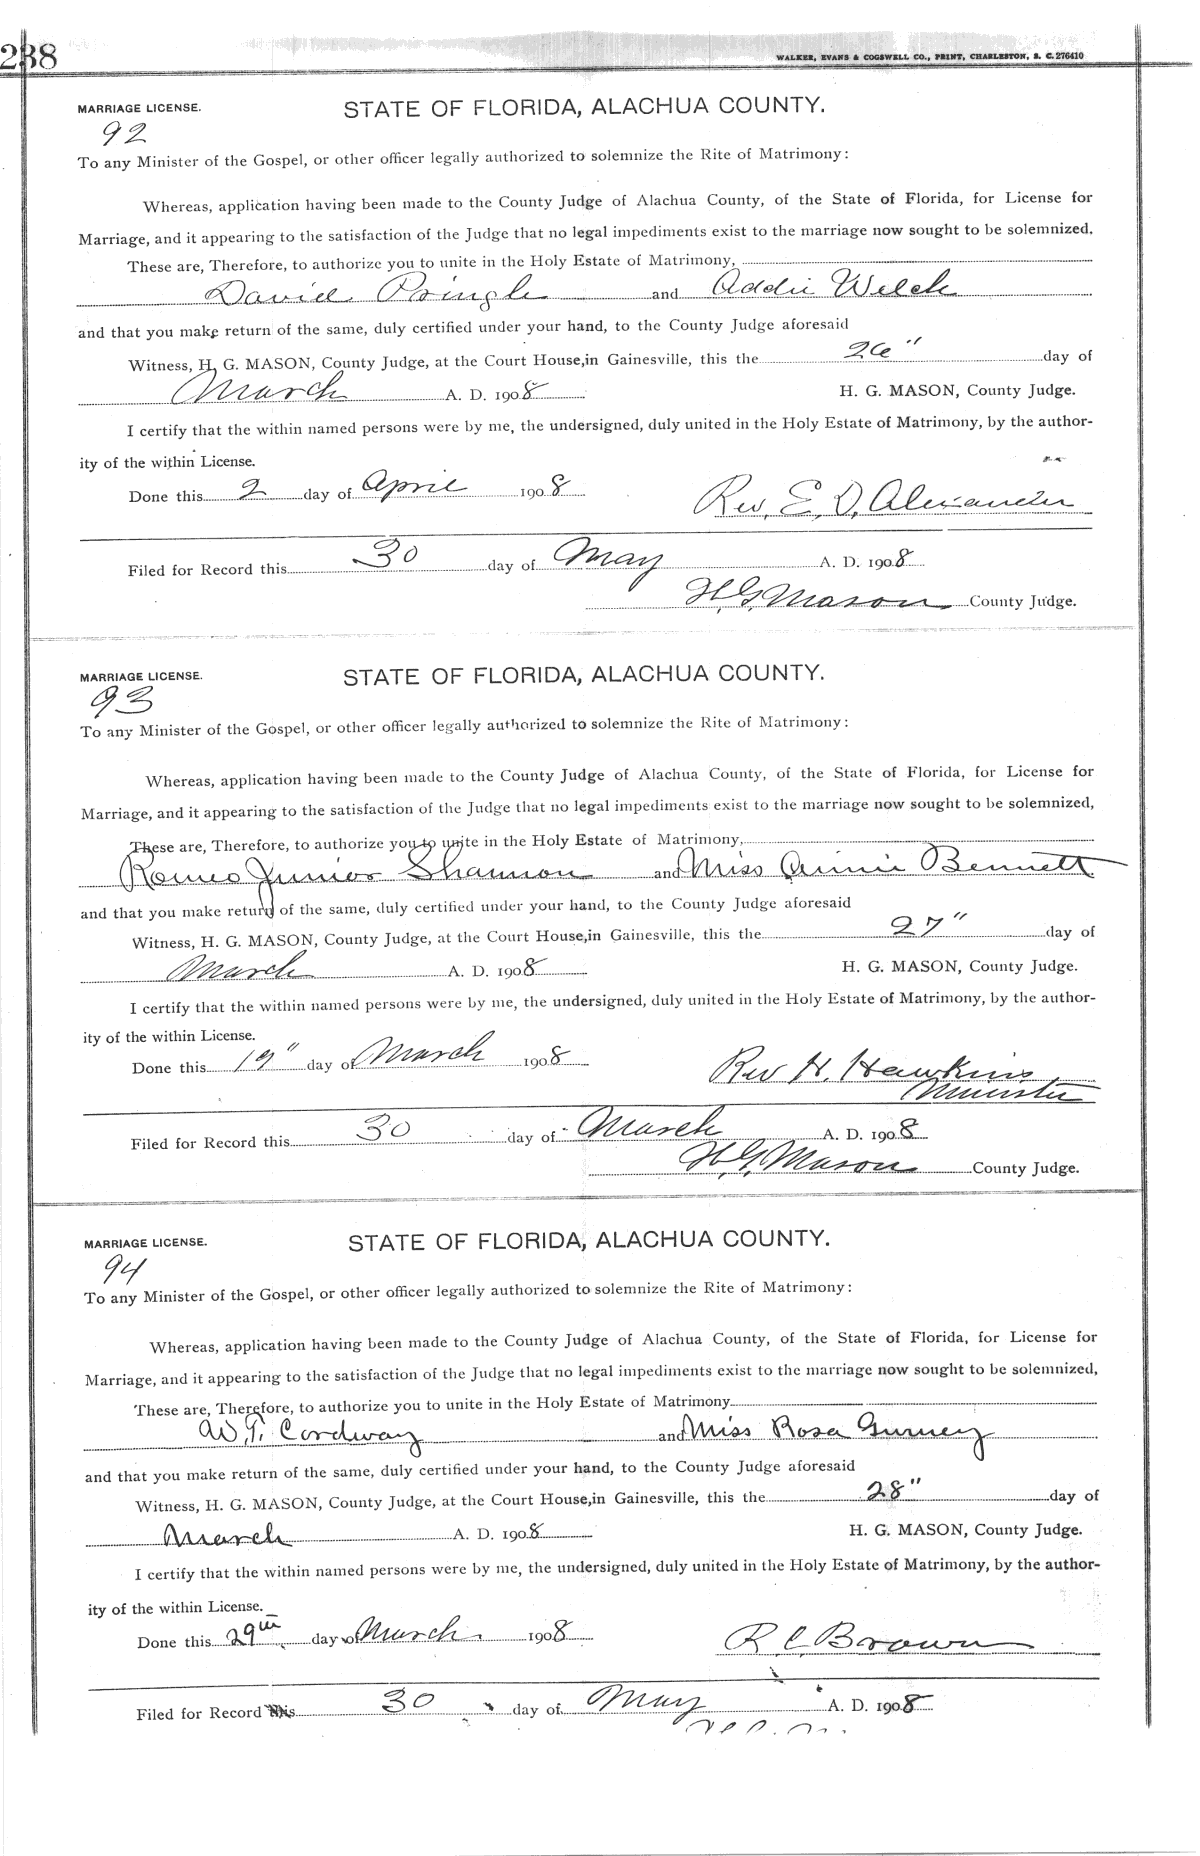 238
WALKER, EVANS & COGSWELL CO., PRINT, CHARLESTON, S. C. 276410
MARRIAGE LICENSE. STATE OF FLORIDA, ALACHUA COUNTY.
92
To any Minister of the Gospel, or other officer legally authorized to solemnize the Rite of Matrimony:
Whereas, application having been made to the County Judge of Alachua County, of the State of Florida, for License for
Marriage, and it appearing to the satisfaction of the Judge that no legal impediments exist to the marriage now sought to be solemnized,
These are, Therefore, to authorize you to unite in the Holy Estate of Matrimony,
David Pringle and Addie Welch
and that you make return of the same, duly certified under your hand, to the County Judge aforesaid
Witness, H. G. MASON, County Judge, at the Court House, in Gainesville, this the 26" day of
March A. D. 1908 H. G. MASON, County Judge.
I certify that the within named persons were by me, the undersigned, duly united in the Holy Estate of Matrimony, by the author-
ity of the within License.
Done this 2 day of April 1908 Rev. E. D. Alexander
Filed for Record this 30 day of May A. D. 1908
H. G. Mason County Judge.
MARRIAGE LICENSE. STATE OF FLORIDA, ALACHUA COUNTY.
93
To any Minister of the Gospel, or other officer legally authorized to solemnize the Rite of Matrimony:
Whereas, application having been made to the County Judge of Alachua County, of the State of Florida, for License for
Marriage, and it appearing to the satisfaction of the Judge that no legal impediments exist to the marriage now sought to be solemnized,
These are, Therefore, to authorize you to unite in the Holy Estate of Matrimony,
Romeo Junior Shannon and Miss Annie Bennett
and that you make return of the same, duly certified under your hand, to the County Judge aforesaid
Witness, H. G. MASON, County Judge, at the Court House, in Gainesville, this the 27" day of
March A. D. 1908 H. G. MASON, County Judge.
I certify that the within named persons were by me, the undersigned, duly united in the Holy Estate of Matrimony, by the author-
ity of the within License.
Done this 19" day of March 1908 Rev H. Hawkins
Minister
Filed for Record this 30 day of March A. D. 1908
H. G. Mason County Judge.
MARRIAGE LICENSE. STATE OF FLORIDA, ALACHUA COUNTY.
94
To any Minister of the Gospel, or other officer legally authorized to solemnize the Rite of Matrimony:
Whereas, application having been made to the County Judge of Alachua County, of the State of Florida, for License for
Marriage, and it appearing to the satisfaction of the Judge that no legal impediments exist to the marriage now sought to be solemnized,
These are, Therefore, to authorize you to unite in the Holy Estate of Matrimony
W. T. Cordway and Miss Rosa Gurney
and that you make return of the same, duly certified under your hand, to the County Judge aforesaid
Witness, H. G. MASON, County Judge, at the Court House, in Gainesville, this the 28" day of
March A. D. 1908 H. G. MASON, County Judge.
I certify that the within named persons were by me, the undersigned, duly united in the Holy Estate of Matrimony, by the author-
ity of the within License.
Done this 29th day of March 1908 R. C. Brown
Filed for Record this 30 day of May A. D. 1908